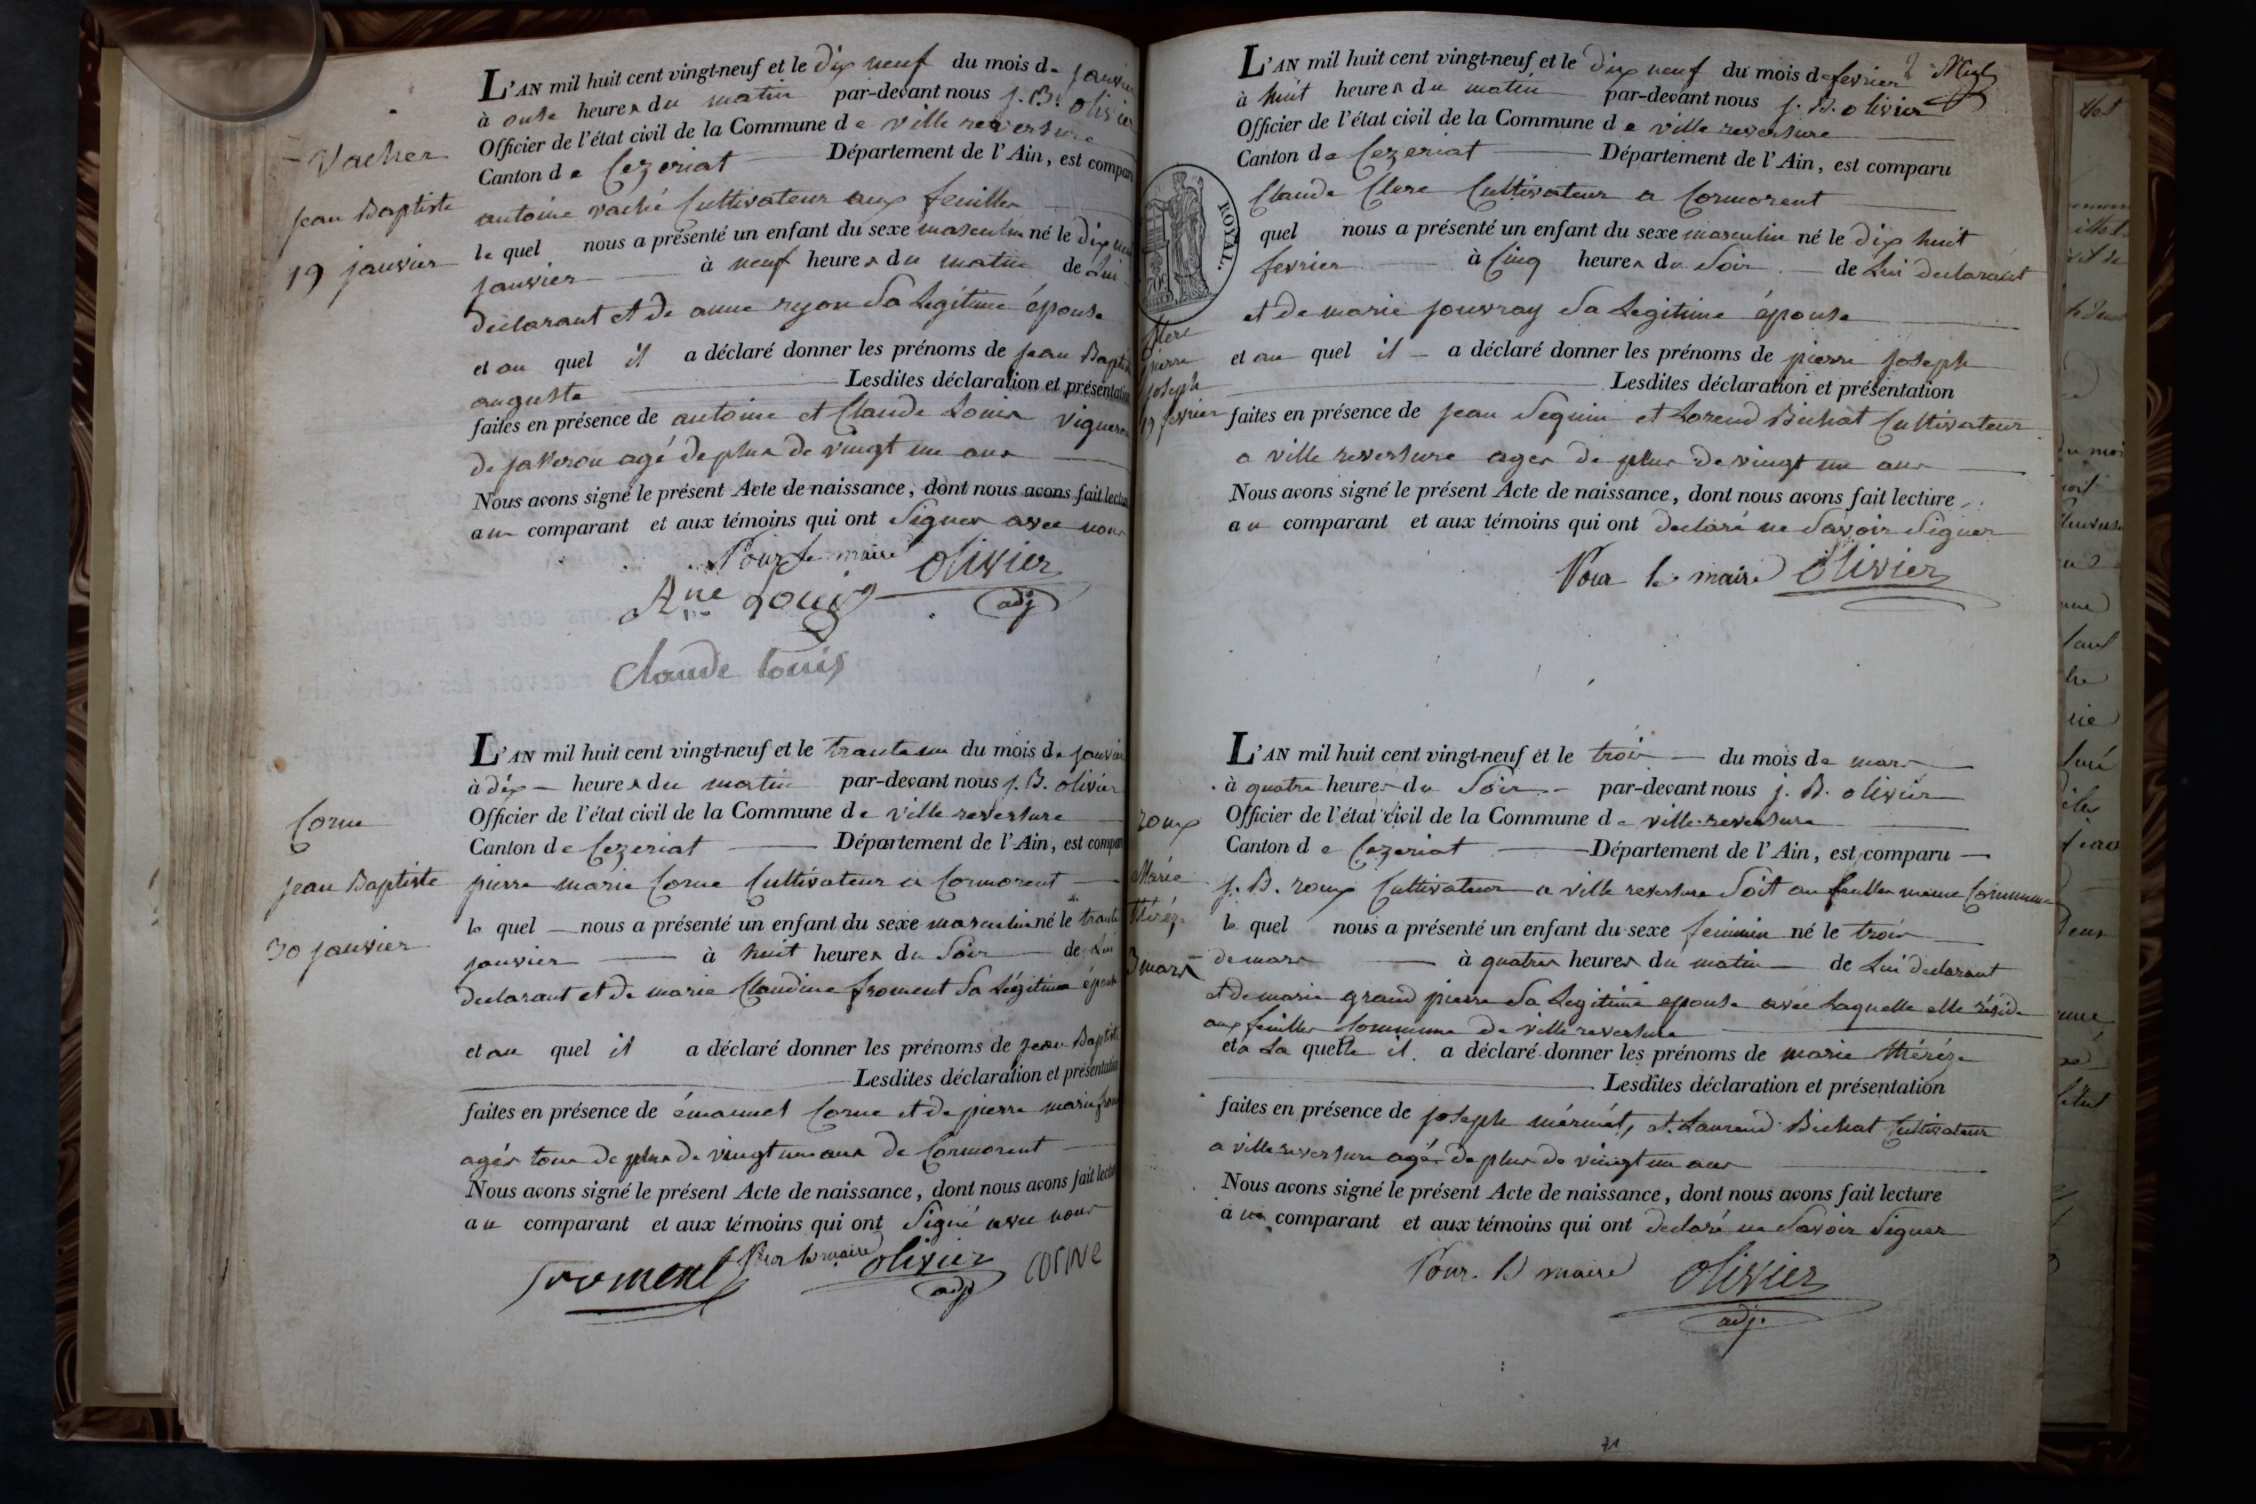 Vacher
Jean Baptiste
19 janvier
L'AN mil huit cent vingt-neuf et le dix neuf du mois de janvier
à onse heures du matin par-devant nous j. B. olivier
Officier de l'état civil de la Commune de ville reversure
Canton de Cezeriat Département de l'Ain, est compar
antoine vaché Cultivateur aux feuilles
le quel nous a présenté un enfant du sexe masculin né le dix neuf
janvier à neuf heures du matin de Lui
declarant et de anne ryon Sa Legitime épouse
et au quel il a déclaré donner les prénoms de jean Baptiste
auguste Lesdites déclaration et présentation
faites en présence de antoine et Claude Louis vigneron
de jasseron agé de plus de vingt un ans
Nous avons signé le présent Acte de naissance, dont nous avons fait lecture
au comparant et aux témoins qui ont Signer avec nous
Pour le maire olivier
adj
Ane Louis
Claude Louis
Corne
jean Baptiste
30 janvier
L'AN mil huit cent vingt-neuf et le trante un du mois de janvier
à dix heures du matin par-devant nous j. B. olivier
Officier de l'état civil de la Commune de ville reversure
Canton de Cezeriat Département de l'Ain, est compar
pierre marie Corne Cultivateur a Cormorent
le quel nous a présenté un enfant du sexe masculin né le trante
janvier à huit heures du Soir de Lui
declarant et de marie Claudine froment Sa Légitime épouse
et au quel il a déclaré donner les prénoms de jean Baptiste
Lesdites déclaration et présentation
faites en présence de émanuel Corne et de pierre marie from
agés tous de plus de vingt un ans de Cormorent
Nous avons signé le présent Acte de naissance, dont nous avons fait lecture
au comparant et aux témoins qui ont Signé avec nous
froment Pour le maire olivier corne
adj
2
L'AN mil huit cent vingt-neuf et le dix neuf du mois de fevrier
à huit heures du matin par-devant nous j. B. olivier
Officier de l'état civil de la Commune de ville reversure
Canton de Cezeriat Département de l'Ain, est comparu
ROYAL.
Claude Clere Cultivateur a Cormorent
quel nous a présenté un enfant du sexe masculin né le dix huit
fevrier à Cinq heures du Soir de Lui declarant
et de marie jouvray Sa Legitime épouse
Clere
pierre
joseph
19 fevrier
et au quel il a déclaré donner les prénoms de pierre joseph
Lesdites déclaration et présentation
faites en présence de jean Seguin et Lorend Bichat Cultivateur
a ville reversure ages de plus de vingt un ans
Nous avons signé le présent Acte de naissance, dont nous avons fait lecture
au comparant et aux témoins qui ont declaré ne Savoir Signer
Pour le maire olivier
roux
Marie
thérèze
3 mars
L'AN mil huit cent vingt-neuf et le trois du mois de mars
à quatre heures du Soir par-devant nous j. B. olivier
Officier de l'état civil de la Commune de ville reversure
Canton de Cezeriat Département de l'Ain, est comparu
j. B. roux Cultivateur a ville reversure Soit au feuilles meme Commune
le quel nous a présenté un enfant du sexe feminin né le trois
de mars à quatres heures du matin de Lui declarant
et de marie grand pierre Sa Legitime epouse avec Laquelle elle réside
aux feuilles Commune de ville reversure
et a La quelle il a déclaré donner les prénoms de marie thérèze
Lesdites déclaration et présentation
faites en présence de joseph mérmét, et Laurend Bichat Cultivateur
a ville reversure agés de plus de vingt un ans
Nous avons signé le présent Acte de naissance, dont nous avons fait lecture
au comparant et aux témoins qui ont declaré ne Savoir Signer
Pour le maire olivier
adj.